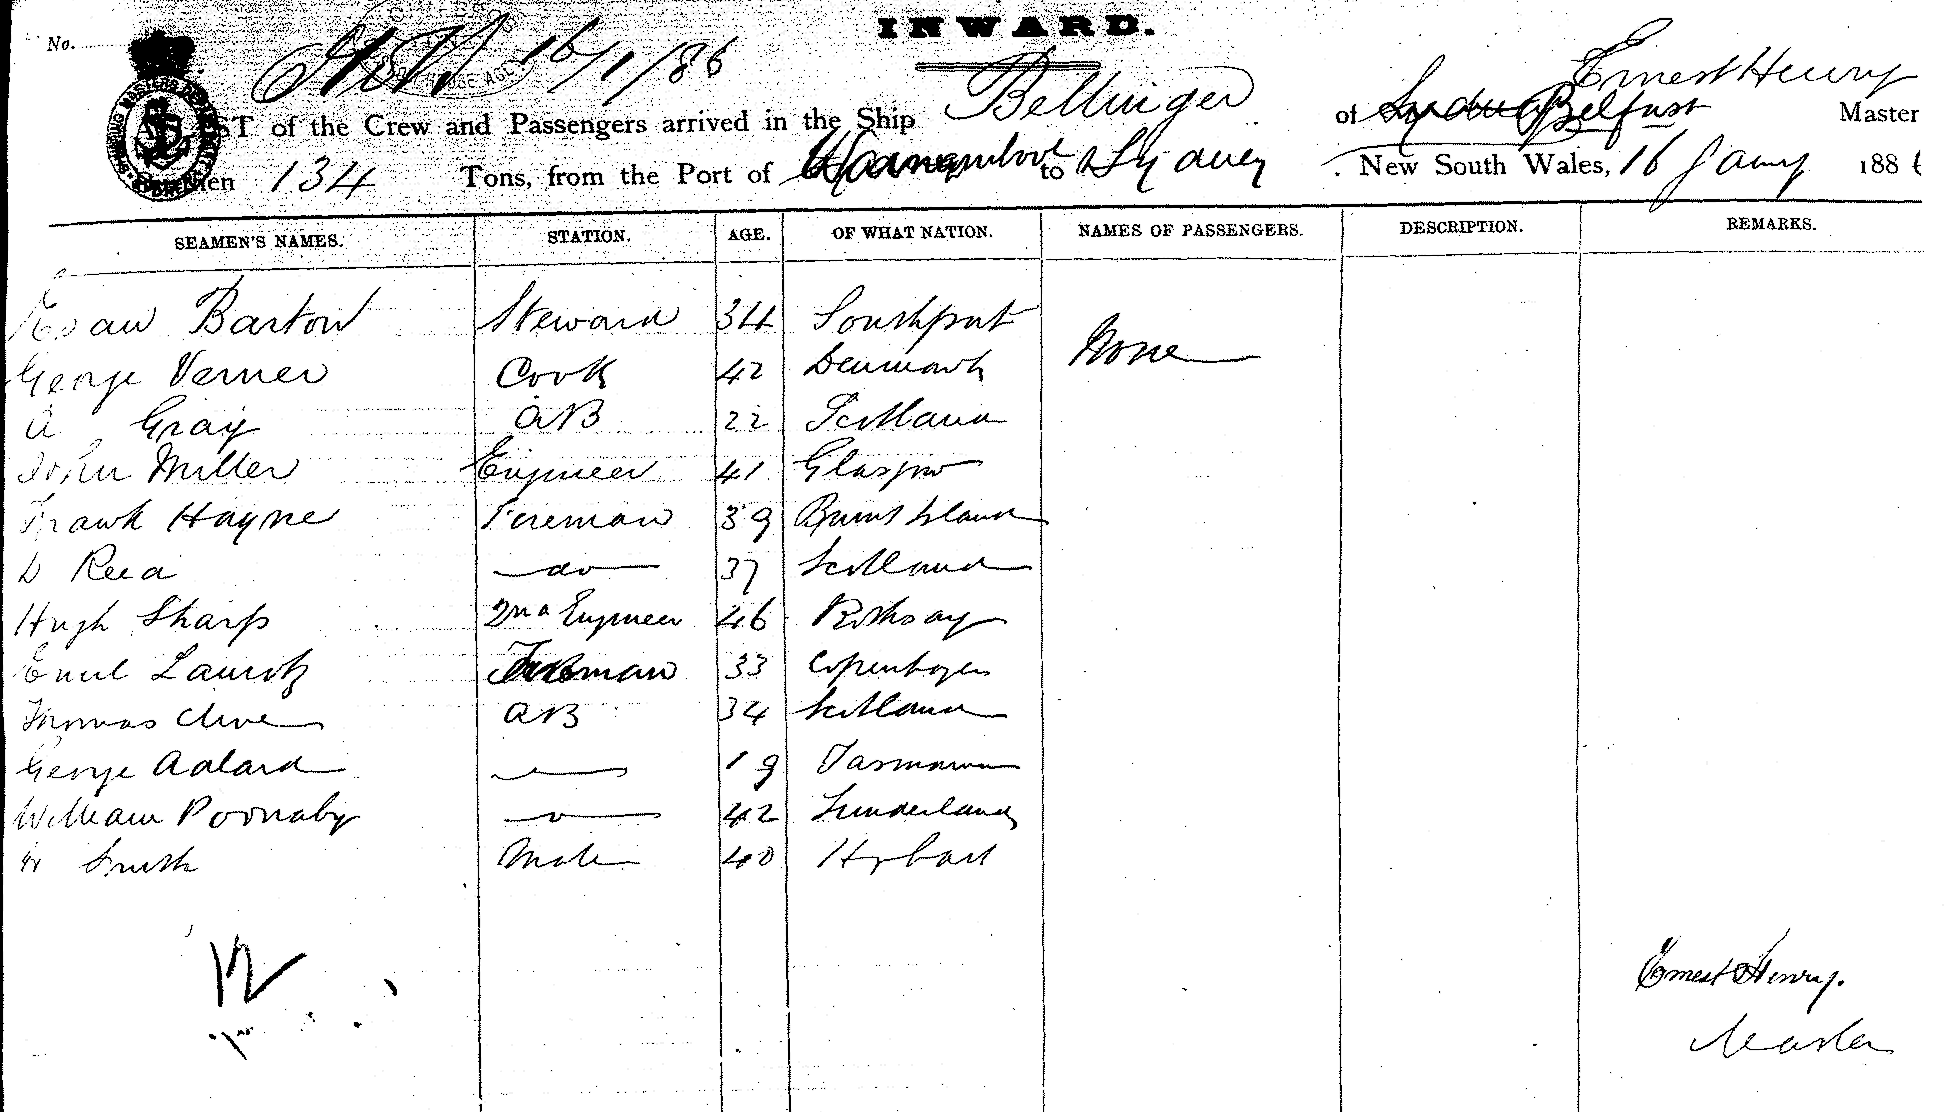 INWARD.
No. 16/1/86
Ernest Henry
LIST of the Crew and Passengers arrived in the Ship Bellinger of Belfast Master
Burthen 134 Tons, from the Port of to Sydney New South Wales, 16 Jany 1886
SEAMEN'S NAMES. STATION. AGE. OF WHAT NATION. NAMES OF PASSENGERS. DESCRIPTION. REMARKS.
Esau Barton Steward 34 Southport None
George Verner Cook 42 Denmark
A Gray AB 22 Scotland
John Miller Engineer 41 Glasgow
Frank Hayne Fireman 39 Burnt Island
D Reed do 37 Scotland
Hugh Sharp 2nd Engineer 46 Rothsay
Emil Lauritz Fireman 33 Copenhagen
Thomas Clive AB 34 Scotland
George Adlard 19 Tasmania
William Poornaby 42 Sunderland
W Smith Mate 40 Hobart
12
Ernest Henry.
Master